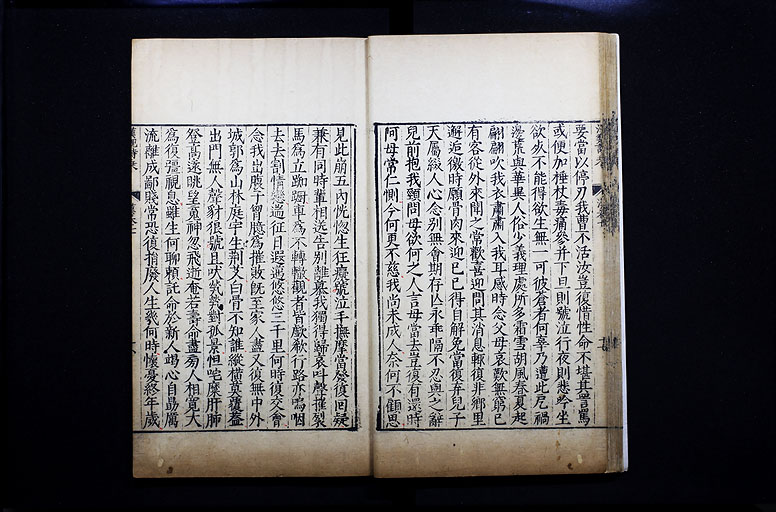 要當以停刃我曹不活汝豈復惜性命不堪其詈罵
或便加棰杖毒痛參并下旦則號泣行夜則悲吟坐
欲死不能得欲生無一可彼蒼者何辜乃遭此戹禍
邊荒與華異人俗少義理處所多霜雪胡風春夏起
翩翩吹我衣肅肅入我耳感時念父母哀歎無窮已
有客從外來聞之常歡喜迎問其消息輒復非鄉里
邂逅徼時願骨肉來迎已已得自解免當復弃兒子
天屬綴人心念別無會期存亡永乖隔不忍與之辭
兒前抱我頸問母欲何之人言母當去豈復有還時
阿母常仁惻今何更不慈我尚未成人奈何不顧思
見此崩五內恍惚生狂癡號泣手撫摩當發復回疑
兼有同時輩相送告別離慕我獨得歸哀叫聲摧裂
馬爲立踟躕車爲不轉轍觀者皆歔欷行路亦嗚咽
去去割情戀遄征日遐邁悠悠三千里何時復交會
念我出腹子胷臆爲摧敗旣至家人盡又復無中外
城郭爲山林庭宇生荆艾白骨不知誰縱橫莫覆蓋
出門無人聲豺狼號且吠煢煢對孤景怛咤糜肝肺
登高遠眺望魂神忽飛逝奄若壽命盡旁人相寬大
爲復彊視息雖生何聊賴託命於新人竭心自勗厲
流離成鄙賤常恐復捐廢人生幾何時懷憂終年歲